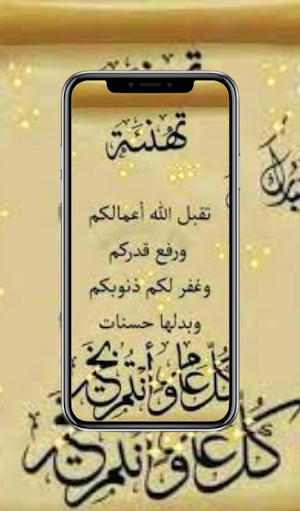 تهنئة
تقبل الله أعمالكم
ورفع قدركم
وغفر لكم ذنوبكم
وبدلها حسنات
كل عام وأنتم بخير
كل عام وأنتم بخير